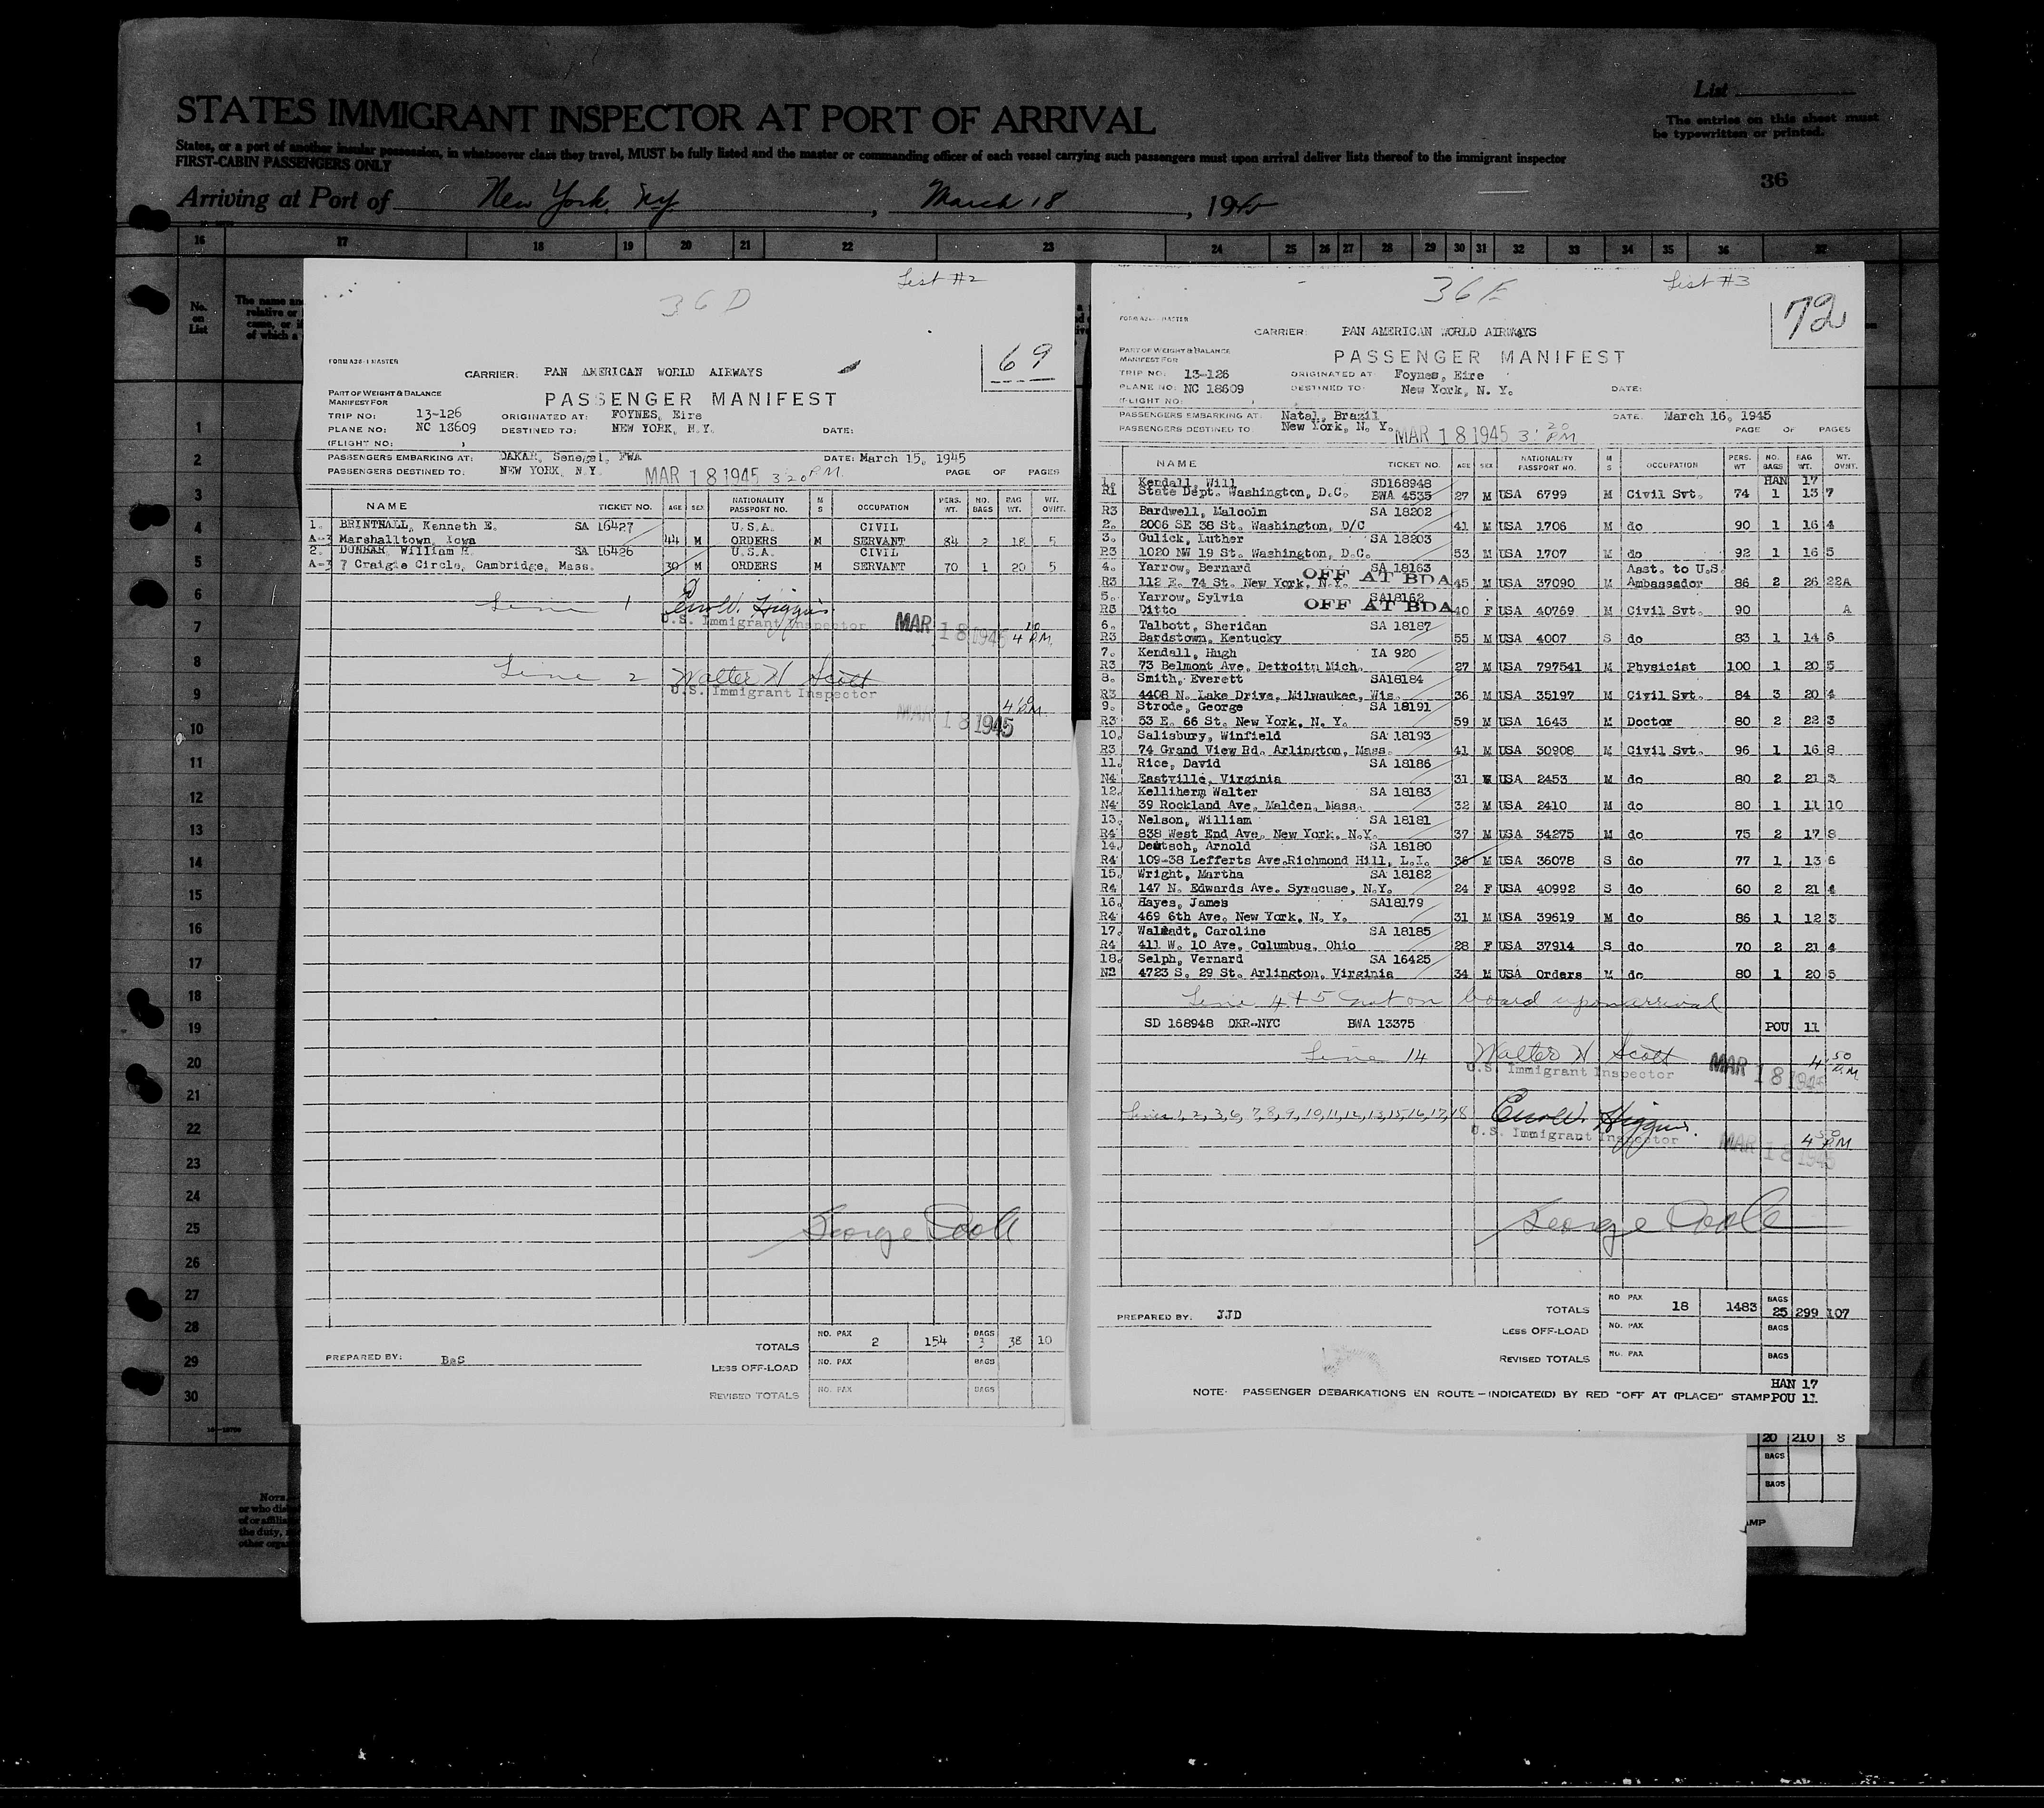 STATES IMMIGRANT INSPECTOR AT PORT OF ARRIVAL
List
The entries on this sheet must
be typewritten or printed.
States, or a port of another insular possession, in whatsoever class they travel, MUST be fully listed and the master or commanding officer of each vessel carrying such passengers must upon arrival deliver lists thereof to the immigrant inspector
FIRST-CABIN PASSENGERS ONLY
36
Arriving at Port of New York, Ny, March 18, 1945
16 17 18 19 20 21 22 23 24 25 26 27 28 29 30 31 32 33 34 35 36 37
No.
on
List
1
2
3
4
5
6
7
8
9
10
11
12
13
14
15
16
17
18
19
20
21
22
23
24
25
26
27
28
29
30
List #2
36 D
69
FORM A28-1 MASTER
CARRIER: PAN AMERICAN WORLD AIRWAYS
PART OF WEIGHT & BALANCE
MANIFEST FOR
PASSENGER MANIFEST
TRIP NO: 13-126 ORIGINATED AT: FOYNES, Eire
PLANE NO: NC 18609 DESTINED TO: NEW YORK, N.Y. DATE:
(FLIGHT NO: )
PASSENGERS EMBARKING AT: DAKAR, Senegal, FWA DATE: March 15, 1945
PASSENGERS DESTINED TO: NEW YORK, N.Y. MAR 18 1945 3:20 P.M. PAGE OF PAGES
NAME TICKET NO. AGE SEX NATIONALITY PASSPORT NO. M S OCCUPATION PERS. WT. NO. BAGS BAG WT. WT. OVHT.
1. BRINTNALL, Kenneth E. SA 16427 U.S.A. CIVIL
A-3 Marshalltown, Iowa 44 M ORDERS M SERVANT 84 2 18 5
2. DUNBAR, William H. SA 16426 U.S.A. CIVIL
A-3 7 Craigie Circle, Cambridge, Mass. 30 M ORDERS M SERVANT 70 1 20 5
Line 1 Higgins
U.S. Immigrant Inspector MAR 18 1945 4 10 P.M.
Line 2 Walter H Scott
U.S. Immigrant Inspector
MAR 18 1945
George Doole
TOTALS NO. PAX 2 154 BAGS 3 38 10
PREPARED BY: BaS
LESS OFF-LOAD NO. PAX BAGS
REVISED TOTALS NO. PAX BAGS
List #3
36 E
72
FORM A28-1 MASTER
CARRIER: PAN AMERICAN WORLD AIRWAYS
PART OF WEIGHT & BALANCE
MANIFEST FOR
PASSENGER MANIFEST
TRIP NO: 13-126 ORIGINATED AT: Foynes, Eire
PLANE NO: NC 18609 DESTINED TO: New York, N. Y. DATE:
(FLIGHT NO: )
PASSENGERS EMBARKING AT: Natal, Brazil DATE: March 16, 1945
PASSENGERS DESTINED TO New York, N. Y. MAR 18 1945 3:20 PM PAGE OF PAGES
NAME TICKET NO. AGE SEX NATIONALITY PASSPORT NO. M S OCCUPATION PERS. WT NO. BAGS BAG WT. WT. OVHT.
1. Kendall, Will SD168948 HAN 17
R1 State Dept. Washington, D.C. BWA 4535 27 M USA 6799 M Civil Svt. 74 1 13 7
R3 Bardwell, Malcolm SA 18202
2. 2006 SE 38 St. Washington, D/C 41 M USA 1706 M do 90 1 16 4
3. Gulick, Luther SA 18203
R3 1020 NW 19 St. Washington, D.C. 53 M USA 1707 M do 92 1 16 5
4. Yarrow, Bernard SA 18163 Asst. to U.S.
R3 112 E. 74 St. New York, N.Y. OFF AT BDA 45 M USA 37090 M Ambassador 86 2 26 22A
5. Yarrow, Sylvia SA18162
R3 Ditto OFF AT BDA 40 F USA 40769 M Civil Svt. 90 A
6. Talbott, Sheridan SA 18187
R3 Bardstown, Kentucky 55 M USA 4007 S do 83 1 14 6
7. Kendall, Hugh IA 920
R3 73 Belmont Ave, Detroitm Mich. 27 M USA 797541 M Physicist 100 1 20 5
8. Smith, Everett SA18184
R3 4408 N. Lake Drive, Milwaukee, Wis. 36 M USA 35197 M Civil Svt. 84 3 20 4
9. Strode, George SA 18191
R3 53 E. 66 St. New York, N. Y. 59 M USA 1643 M Doctor 80 2 22 3
10. Salisbury, Winfield SA 18193
R3 74 Grand View Rd. Arlington, Mass. 41 M USA 30908 M Civil Svt. 96 1 16 8
11. Rice, David SA 18186
N4 Eastville, Virginia 31 M USA 2453 M do 80 2 21 3
12. Kelliherm Walter SA 18183
N4 39 Rockland Ave. Malden, Mass. 32 M USA 2410 M do 80 1 11 10
13. Nelson, William SA 18181
R4 838 West End Ave. New York, N.Y. 37 M USA 34275 M do 75 2 17 8
14. Deutsch, Arnold SA 18180
R4 109-38 Lefferts Ave.Richmond Hill, L.I. 36 M USA 36078 S do 77 1 13 6
15. Wright, Martha SA 18182
R4 147 N. Edwards Ave. Syracuse, N.Y. 24 F USA 40992 S do 60 2 21 4
16. Hayes, James SA18179
R4 469 6th Ave. New York, N. Y. 31 M USA 39619 M do 86 1 12 3
17. Walstadt, Caroline SA 18185
R4 411 W. 10 Ave, Columbus, Ohio 28 F USA 37914 S do 70 2 21 4
18. Selph, Vernard SA 16425
N2 4723 S. 29 St. Arlington, Virginia 34 M USA Orders M do 80 1 20 5
Line 4 + 5 not on board upon arrival
SD 168948 DKR-NYC BWA 13375 POU 11
Line 14 Walter H Scott
U.S. Immigrant Inspector MAR 18 1945 4 50 P.M
Lines 1, 2, 3, 6, 7, 8, 9, 10, 11, 12, 13, 15, 16, 17, 18 Higgins.
U.S. Immigrant Inspector MAR 18 1945 4 50 P.M
George Doole
TOTALS NO PAX 18 1483 BAGS 25 299 107
PREPARED BY: JJD
LESS OFF-LOAD NO. PAX BAGS
REVISED TOTALS NO. PAX BAGS
HAN 17
NOTE: PASSENGER DEBARKATIONS EN ROUTE—INDICATE(D) BY RED "OFF AT (PLACE)" STAMP POU 11
20 210 8
BAGS
BAGS
AMP